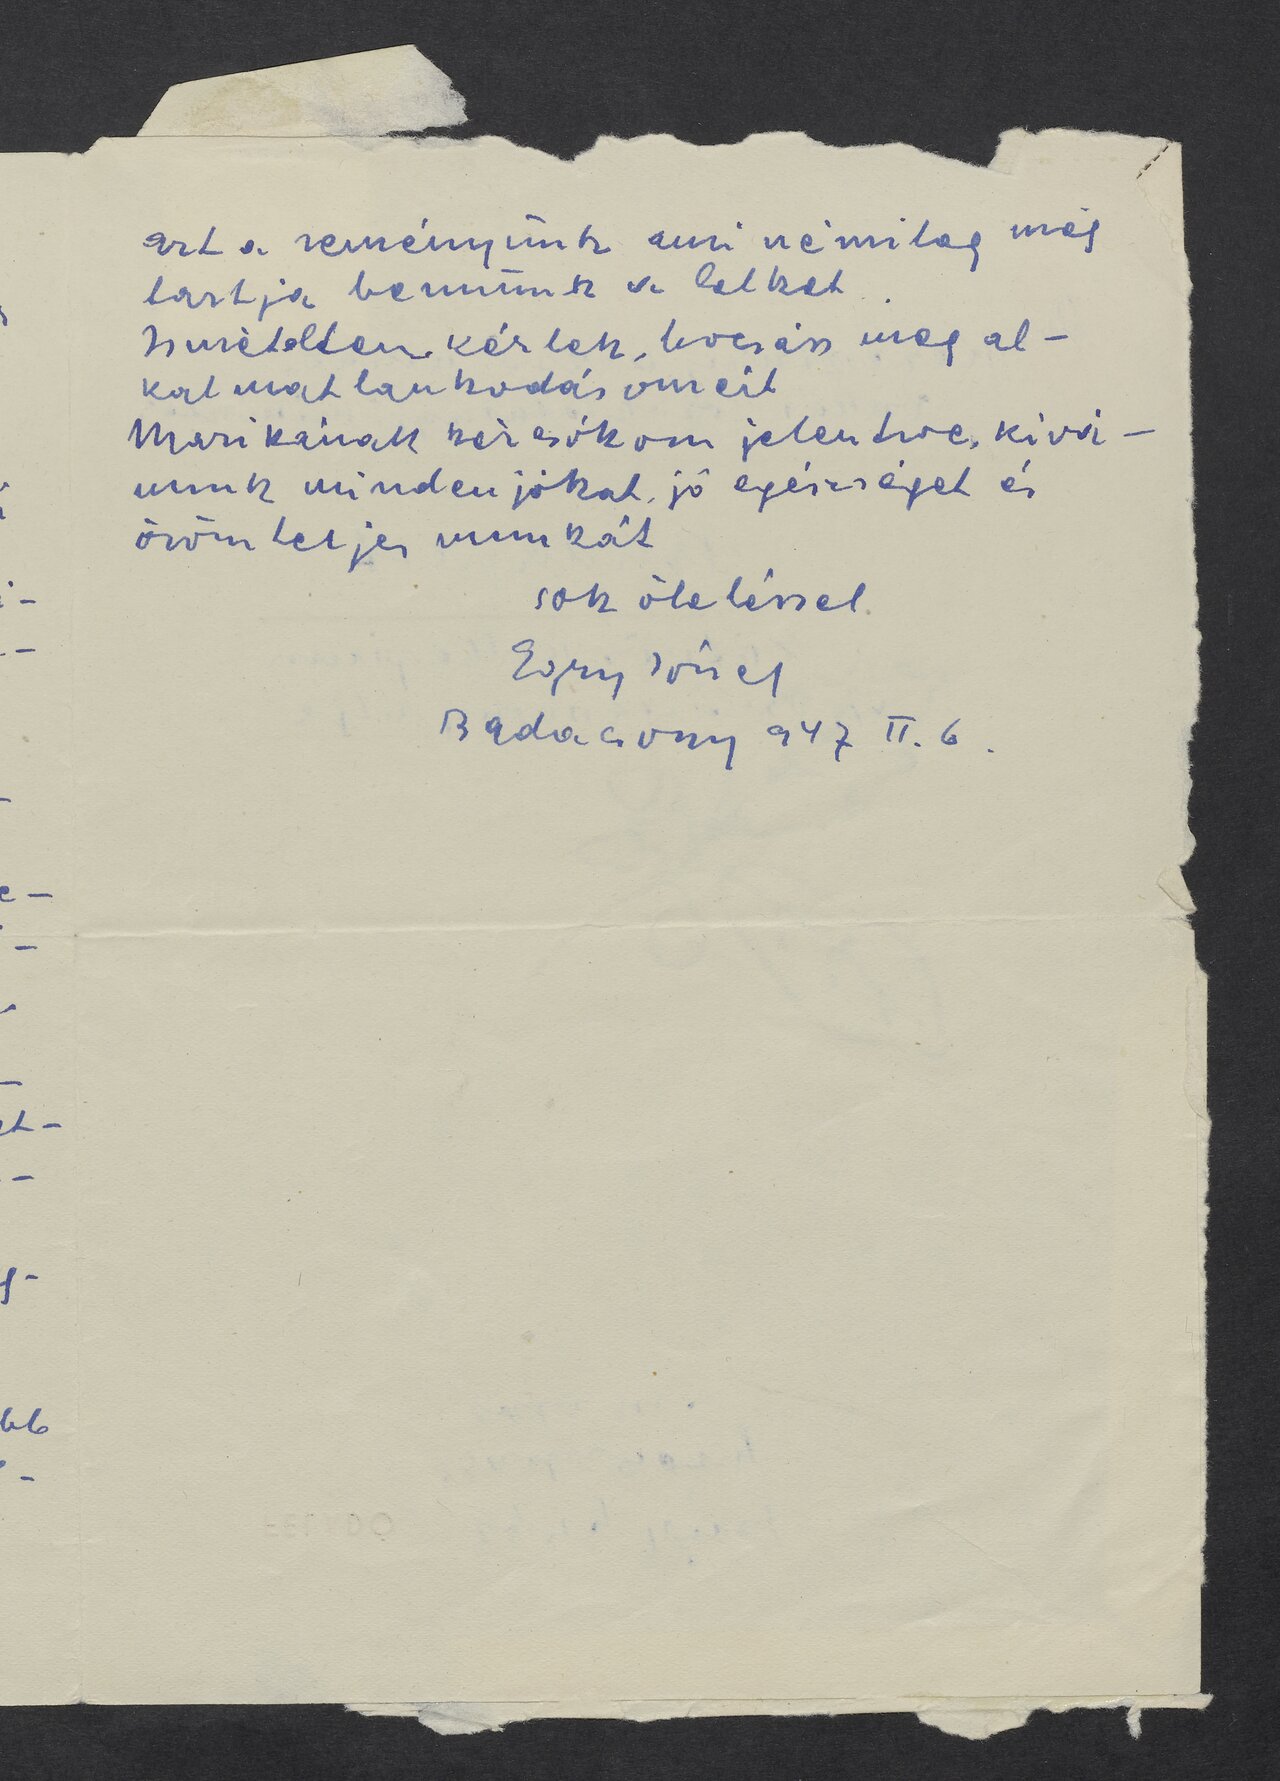 ezt a reményünk ami némileg még
tartja bennünk a lelket.
Ismételten kérlek, bocsáss meg al-
kalmatlankodásomért
Marikának kézcsókom jelentve, kivá-
nunk minden jókat, jó egészséget és
örömteljes munkát
sok öleléssel
Egry József
Badacsony 947 II. 6.